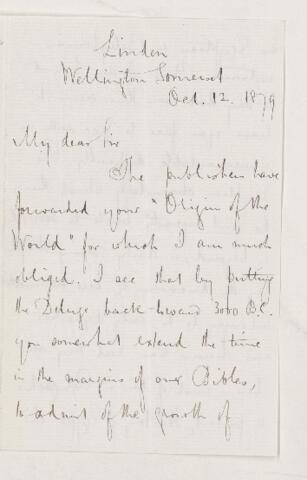 Linden
Wellington Somerset
Oct. 12. 1879
My dear Sir
The publishers have
forwarded your "Origin of the
World" for which I am much
obliged. I see that by putting
the Deluge back toward 3000 B.C.
you somewhat extend the time
in the margins of our Bibles,
to admit of the growth of